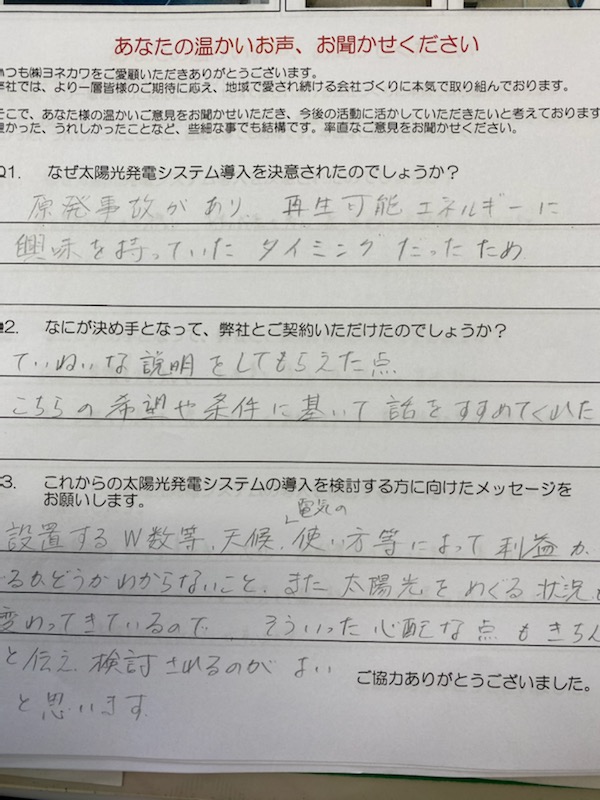 あなたの温かいお声、お聞かせください
いつも㈱ヨネカワをご愛顧いただきありがとうございます。
弊社では、より一層皆様のご期待に応え、地域で愛され続ける会社づくりに本気で取り組んでおります。
そこで、あなた様の温かいご意見をお聞かせいただき、今後の活動に活かしていただきたいと考えております
良かった、うれしかったことなど、些細な事でも結構です。率直なご意見をお聞かせください。
Q1. なぜ太陽光発電システム導入を決意されたのでしょうか？
原発事故があり、再生可能エネルギーに
興味を持っていたタイミングだったため
2. なにが決め手となって、弊社とご契約いただけたのでしょうか？
ていねいな説明をしてもらえた点
こちらの希望や条件に基いて話をすすめてくれた
3. これからの太陽光発電システムの導入を検討する方に向けたメッセージを
お願いします。
電気の
設置するW数等、天候、使い方等によって利益が
るかどうかわからないこと、また太陽光をめぐる状況も
変わってきているので、そういった心配な点もきちん
と伝え、検討されるのがよい
ご協力ありがとうございました。
と思います。